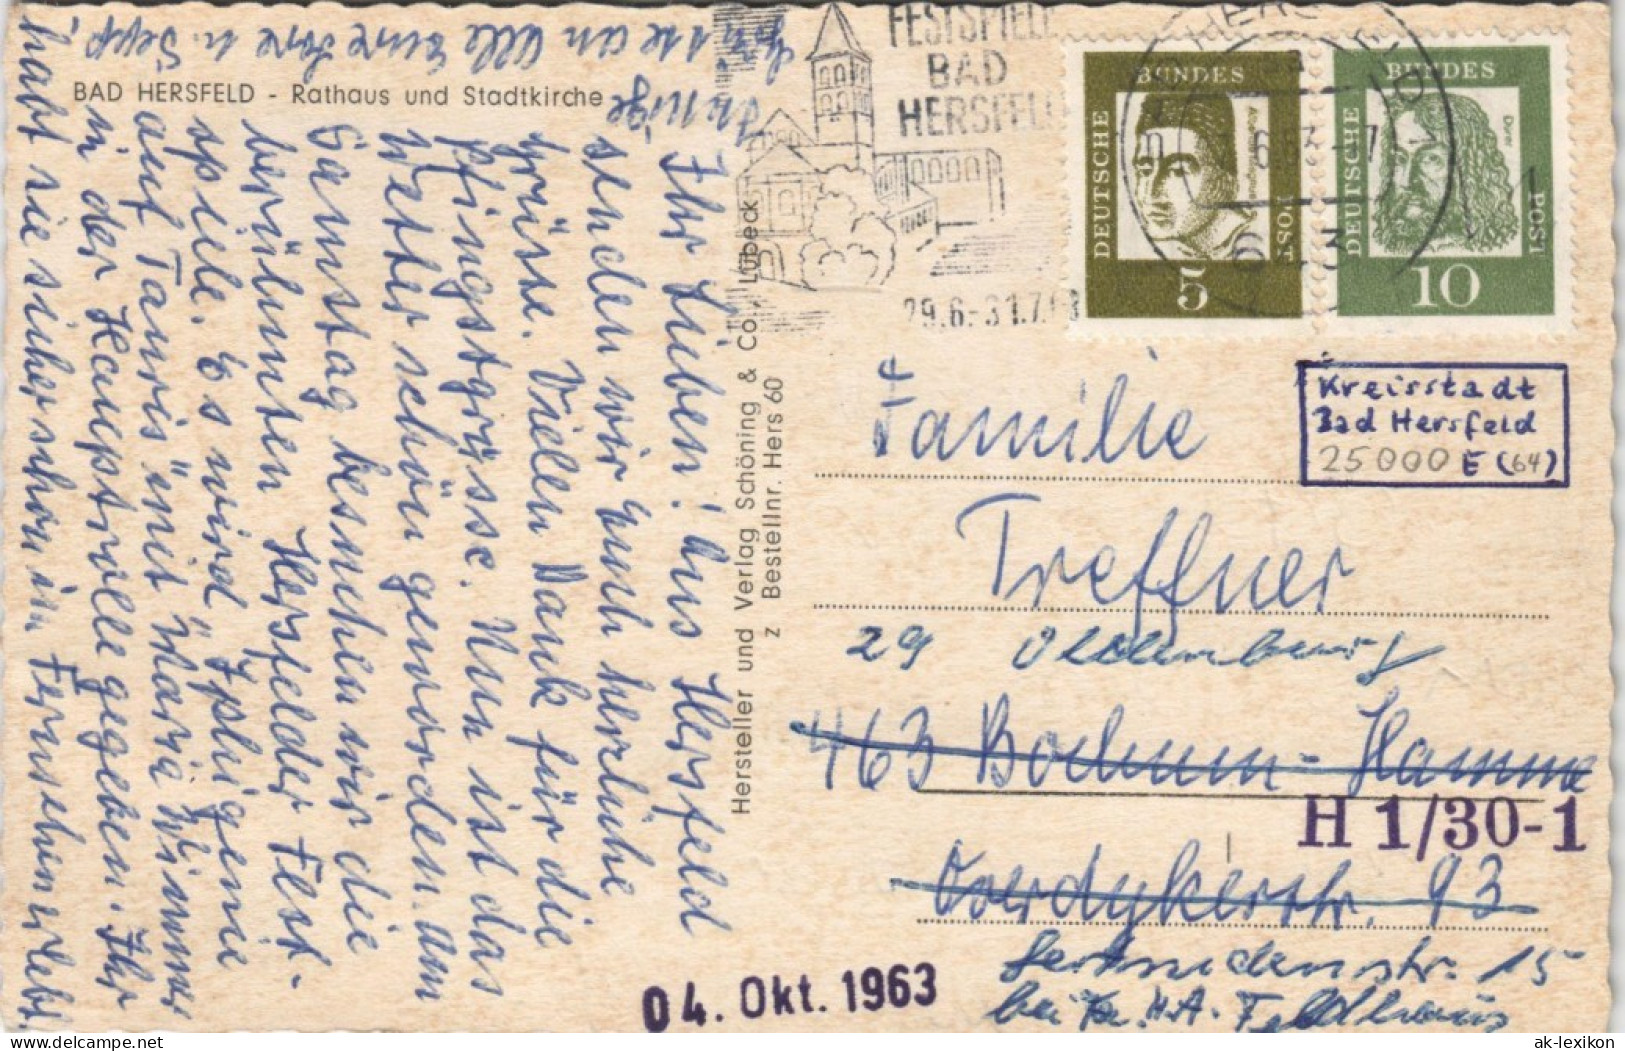 BAD HERSFELD - Rathaus und Stadtkirche
Ihr Lieben! Aus Hersfeld
senden wir Euch herzliche
Grüsse. Vielen Dank für die
Pfingstgrüsse. Nun ist das
Wetter schön geworden. Am
Samstag besuchen wir die
berühmten Hersfelder Fest-
spiele. Es wird "Iphigenie
auf Tauris" mit Maria Wimmer
in der Hauptrolle gegeben. Ihr
habt sie sicher schon im Fernsehen erlebt.
an alle Eure u. Sepp!
Hersteller und Verlag Schöning & Co., Lübeck
z Bestellnr. Hers 60
FESTSPIELE
BAD
HERSFELD
29.6.-31.7.63
BUNDES
DEUTSCHE
POST
5
BUNDES
DEUTSCHE
POST
Dürer
10
Kreisstadt
Bad Hersfeld
25000 E (64)
Familie
Treffner
29 Oldenburg
463 Bochum-Hamme
H 1/30-1
Overdykerstr. 93
Gertrudenstr. 15
bei H.A. Feldhaus
04. Okt. 1963
ak-lexikon